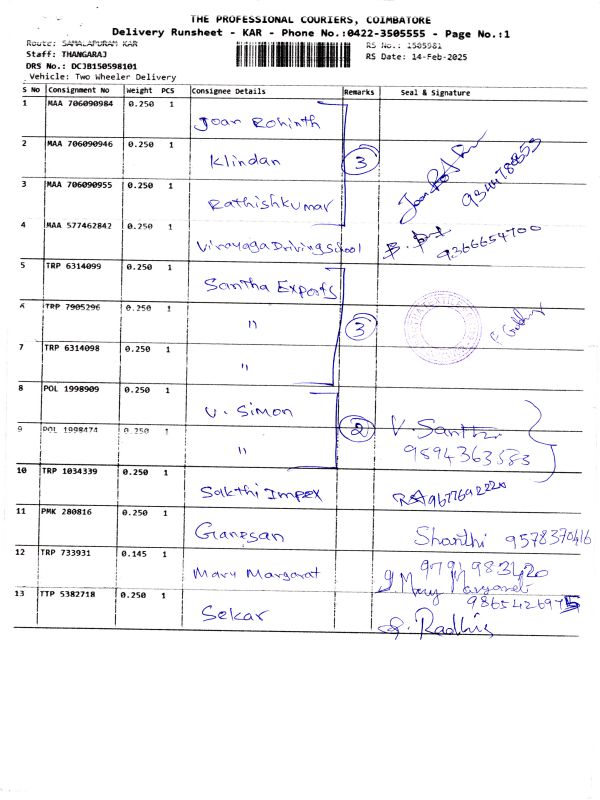 THE PROFESSIONAL COURIERS, COIMBATORE
Delivery Runsheet - KAR - Phone No.:0422-3505555 - Page No.:1
Route: SAMALAPURAM KAR
RS No.: 1505981
Staff: THANGARAJ
RS Date: 14-Feb-2025
DRS No.: DCJB150598101
Vehicle: Two Wheeler Delivery
S No Consignment No Weight PCS Consignee Details Remarks Seal & Signature
1 MAA 706090984 0.250 1 Joan Rohinth
2 MAA 706090946 0.250 1 Klindan 3
3 MAA 706090955 0.250 1 Rathishkumar
4 MAA 577462842 0.250 1 Vinayaga Driving School 9366654700
5 TRP 6314099 0.250 1 Santha Exports
6 TRP 7905296 0.250 1 " 3
7 TRP 6314098 0.250 1 "
8 POL 1998909 0.250 1 V. Simon
9 POL 1998474 0.250 1 " 2 V. Santhi
9594363583
10 TRP 1034339 0.250 1 Sakthi Impex
11 PMK 280816 0.250 1 Ganesan Shanthi 9578370416
12 TRP 733931 0.145 1 Mary Margarat 9791983420
Mary Margaret
13 TTP 5382718 0.250 1 Sekar